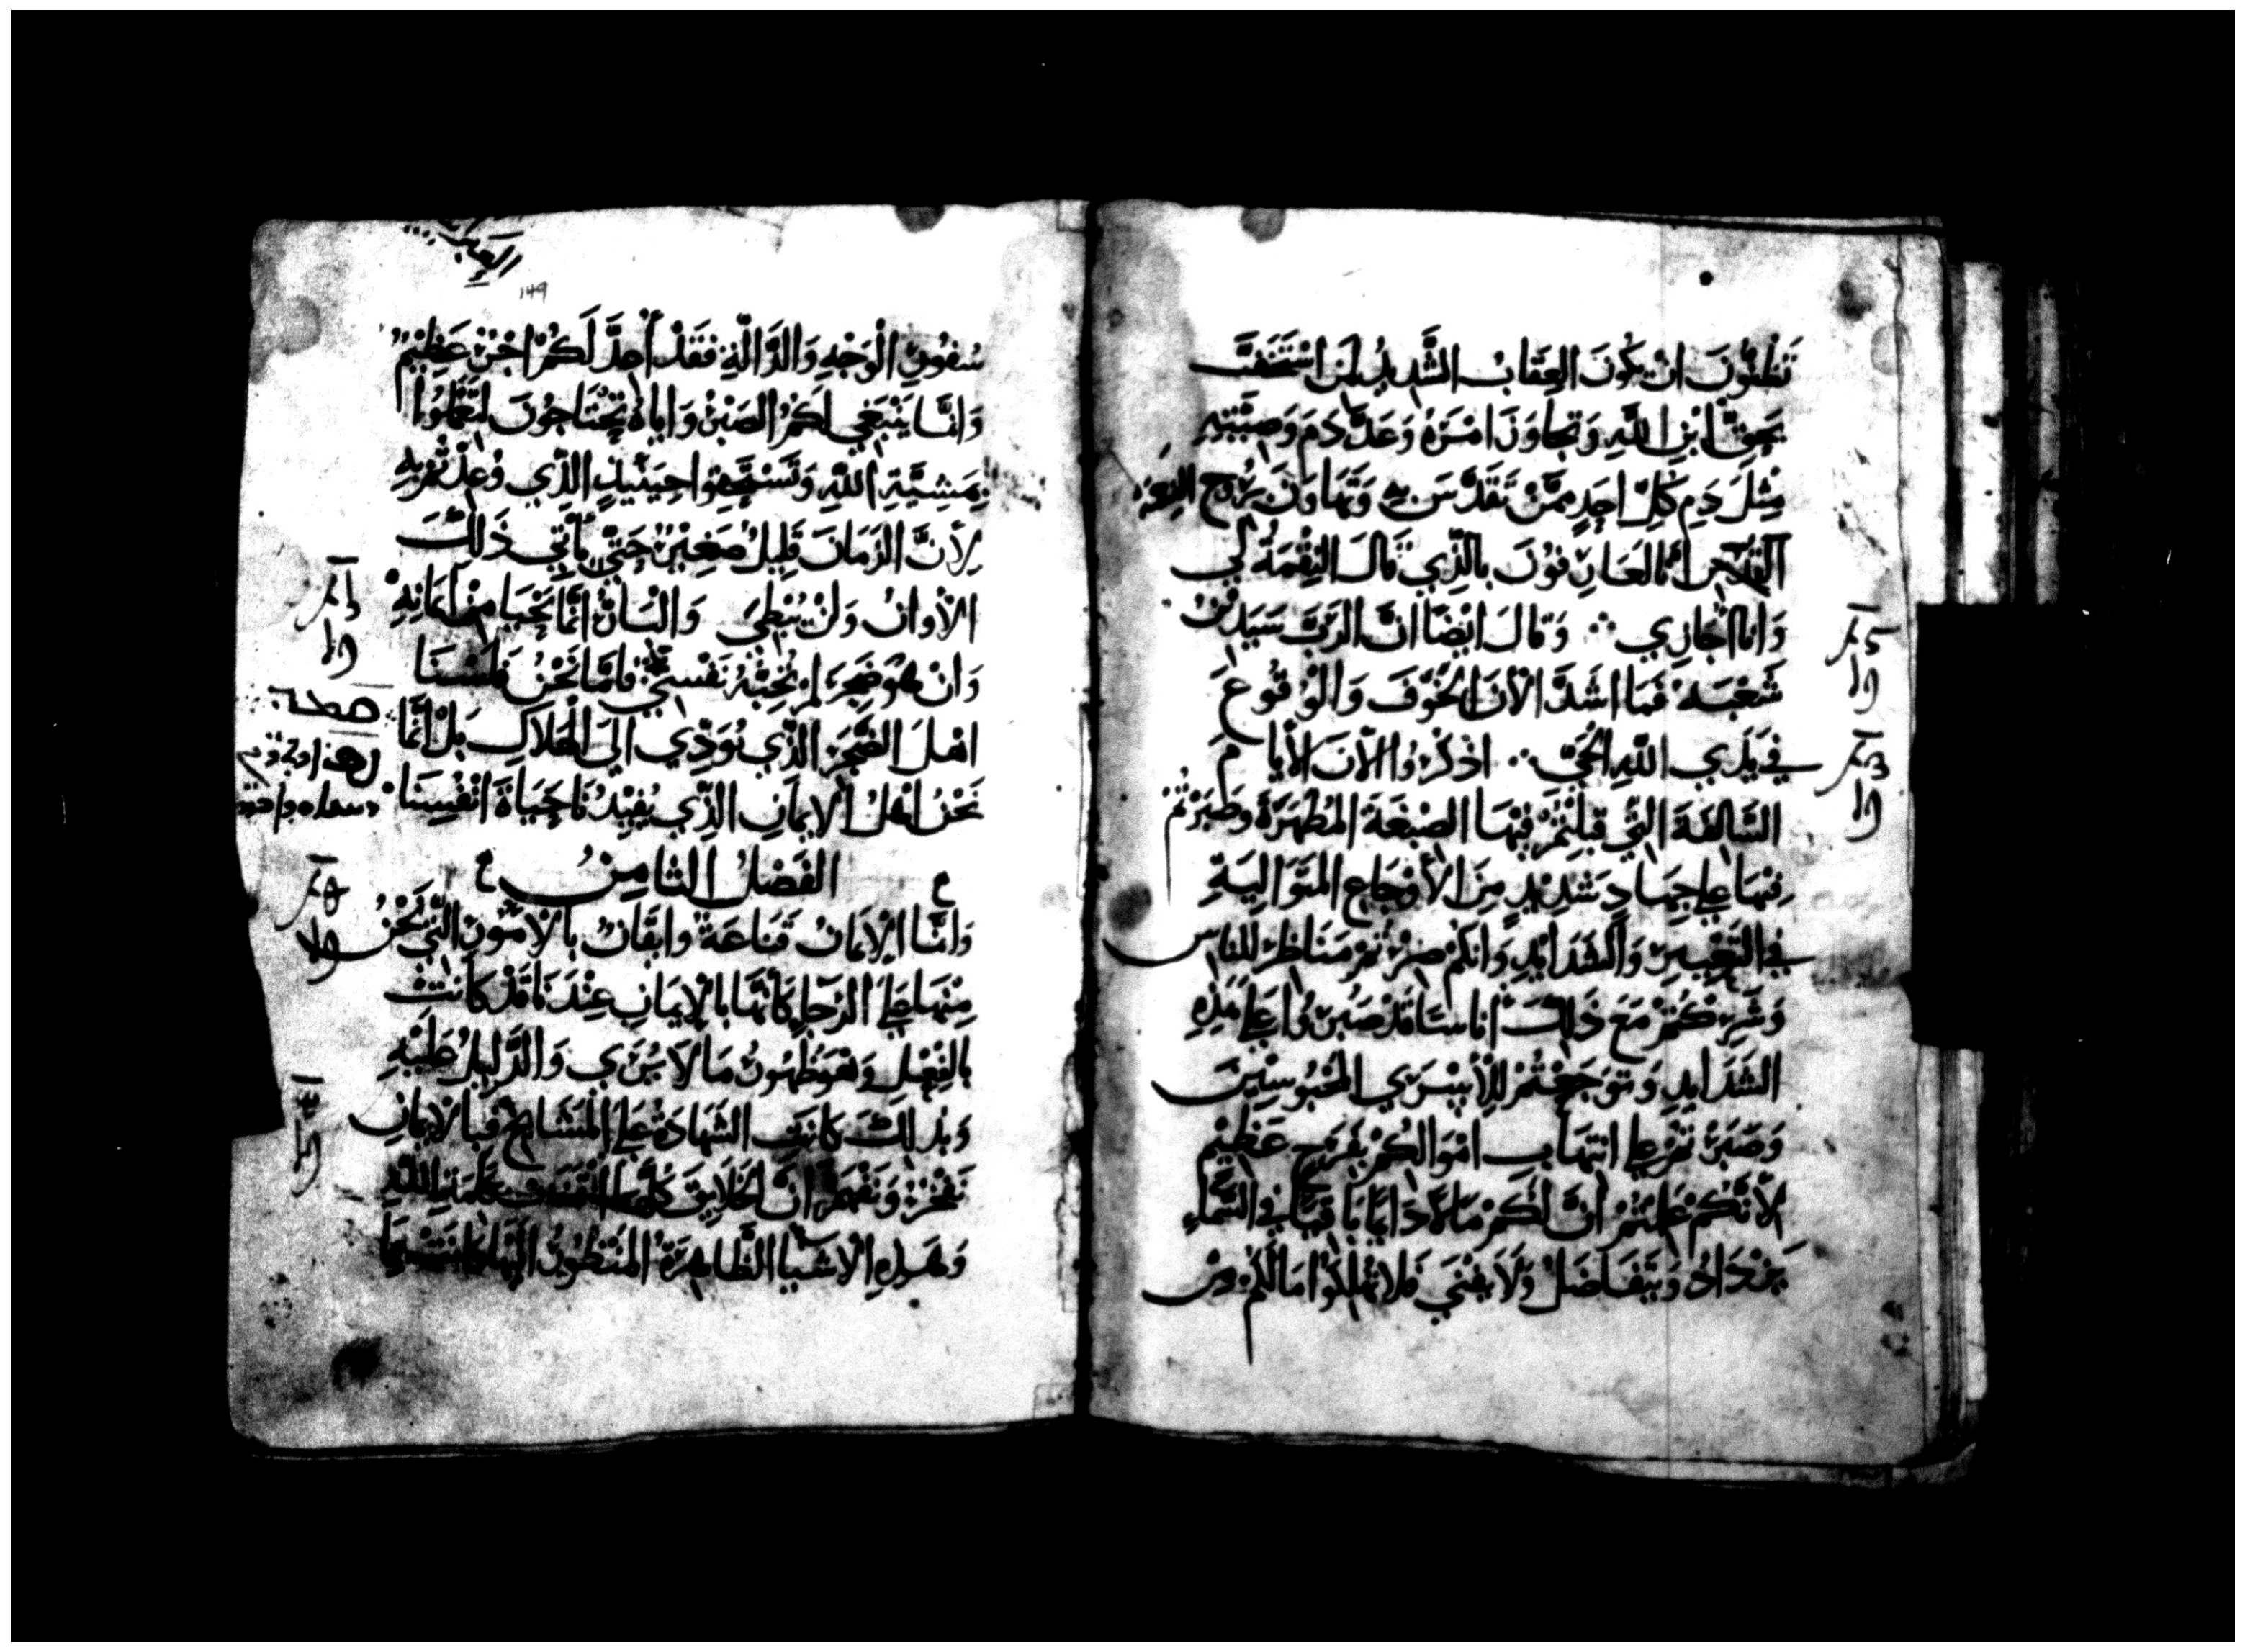 تَظُنُّونَ انْ يَكُونَ العِقَابُ الشَّدِيدُ لِمَن اسْتَخَفَّ
بِحَقِّ ابْنِ اللَّهِ وَتَجَاوَزَ امْرَهُ وَعَدَّ دَمَ وَصِيَّتِهِ
مِثْلَ دَمِ كُلِّ احَدٍ مِمَّنْ تَقَدَّسَ بِهِ وَتَهَاوَنَ بِرُوحِ النِعْمَة
بالَّذِي قَالَ النِقْمَةُ لِي
وَانا اجَازِي ⁘ وَقالَ ايْضًا انَّ الرَّبَّ سَيَدِينُ
شَعْبَهُ فَمَا اشَدَّ الآنَ الخَوْفَ وَالْوُقُوعَ
فِي يَدَيِ اللَّهِ الحَيِّ ⁘ اذْكُرُوا الآنَ الأَيامَ
السَّالِفَةَ الَّتِي قَبِلْتُمْ فِيْهَا الصِبْغَةَ المُطَهِّرَةَ وَصَبَرْتُمْ
فِيْهَا عَلِى جِهَادٍ شَدِيْدٍ مِنَ الأَوْجَاعِ المُتَوَالِيَةِ
فِي التَعْيِيرِ وَالشَدَايدِ وَانكُمْ صِرْتُمْ مَنَاظِرَ لِلناسِ
وَشَرِكْتُمْ مَعَ ذَلِكَ اناسًا قَدْ صَبَرُوا عَلَى هَذِهِ
الشَدَايدِ وَتَوَجَعْتُمْ لِلأَسْرَي المَحْبُوسِينَ
وَصَبَرْتُمْ عَلِى انتِهَابِ امْوَالِكُمْ بِفَرَحٍ عَظِيْمٍ
لأَنَّكُمْ عَلِمْتُمْ انَّ لَكُمْ مَالًا دَايمًا بَاقِيًا فِي السَّمَاءِ
يَزْدَادُ وَيَتَفَاضَلُ وَلَا يَفْنَي فَلا تُهْمِلُوا مَا لَكُمْ مِن
سُفُورِ الْوَجْهِ وَالدَّالَّةِ فَقَدْ أُعِدَّ لَكُمْ اجْرٌ عَظِيْمٌ
وَانَّمَا يَنْبَغِي لَكُمُ الصَبْرُ وَايَاهُ تَحْتَاجُونَ لِتَعْمَلُوا
بِمَشِيَّةِ اللَّهِ وَتَسْتَحِقُوا حِيْنَيْذٍ الَّذِي وُعِدْتُمْ بِهِ
لِأَنَّ الزَمَانَ قَلِيلٌ صَغِيْرٌ حَتَّى يَأْتِي ذَلِكَ
الأَوانُ وَلَنْ يُبْطِيَ وَالبَارُّ انَّمَا يَحْيَا مِنْ ايمَانِهِ
وَانْ هُوَ ضَجِرَ لَمْ تُحِبَّهُ نَفْسِي فَامَّا نَحْنُ فَلَسْنَا
اهْلَ الضَّجَرِ الَّذِي يُوَدِّي الَى الهَلاكِ بَلْ انَّمَا
نَحْنُ اهْلُ الايمَانِ الَّذِي يُفِيْدُنَا حَيَاةَ انْفُسِنَا
الفَصْلُ الثامِنُ
وَانَّمَا الإِيمَانُ قَنَاعَةٌ وايقَانٌ بالأُمُورِ الَّتِي نَحْنُ
مِنْهَا عَلَى الرَجَاءِ كَانَّهَا بالإِيمَانِ عِنْدَنَا قَدْ كَانَتْ
بالفِعْلِ وَهُوَ ظُهُورُ مَا لَا يُرَي وَالدَّلِيلُ عَلَيْهِ
وَبِذَلِكَ كانَتِ الشَهَادَةُ عَلَى المَشَايخِ فَبالايمَانِ
انَّ الخَلايِقَ كُلَّهَا بِكَلِمَةِ اللَّهِ
وَهَذِهِ الأَشْيَا الظَّاهِرَةُ المَنْظُورُ الَيْهَا